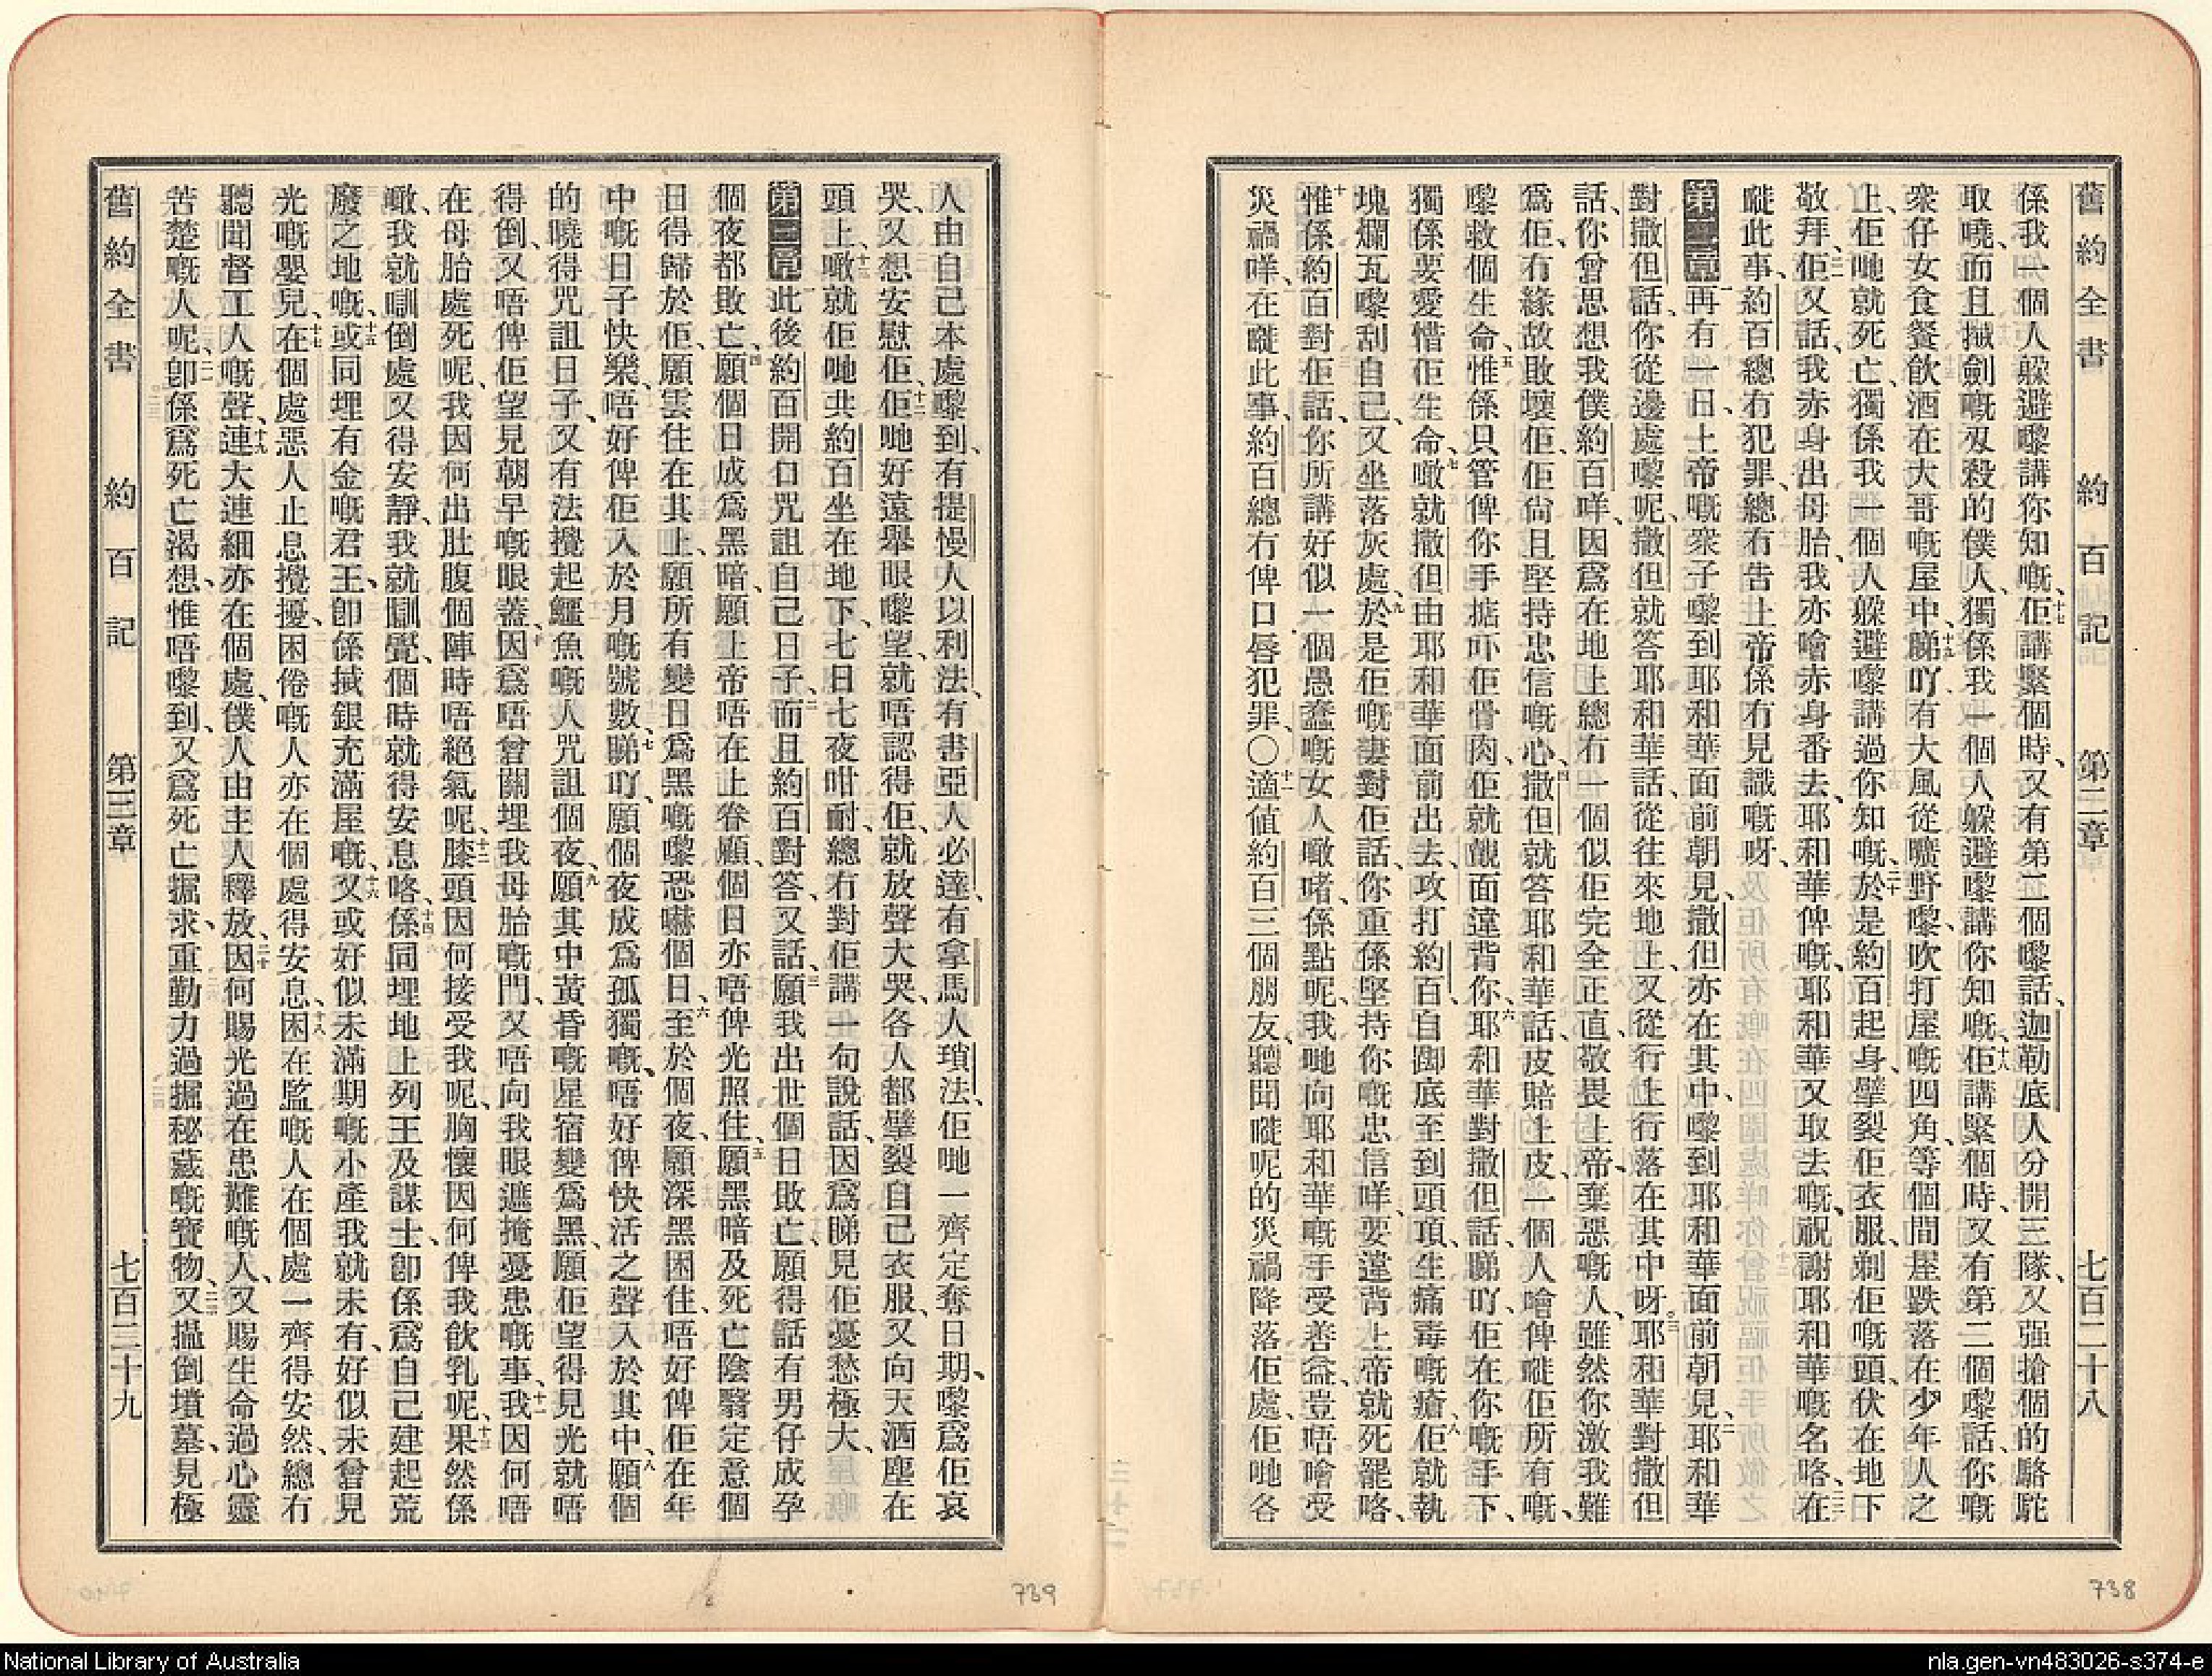 舊約全書 約百記 第二章 七百三十八
係我一個人躱避嚟講你知嘅、佢講緊個時、又有第二個嚟話、迦勒底人分開三隊、又强搶個的駱駝
取曉、而且揻劍嘅刄殺的僕人、獨係我一個人躱避嚟講你知嘅、佢講緊個時、又有第二個嚟話、你嘅
衆仔女食餐飲酒在大哥嘅屋中、睇吖、有大風從曠野嚟、吹打屋嘅四角、等個間屋跌落在少年人之
上、佢哋就死亡、獨係我一個人躱避嚟講過你知嘅、於是約百起身、擘裂佢衣服、剃佢嘅頭、伏在地下
敬拜、佢又話、我赤身出母胎、我亦噲赤身番去、耶和華俾嘅、耶和華又取去嘅、祝謝耶和華嘅名咯、在
嘥此事、約百總冇犯罪、總冇告上帝係冇見識嘅呀、
第二章 再有一日、上帝嘅衆子嚟到耶和華面前朝見、撒但亦在其中、嚟到耶和華面前朝見、耶和華
對撒但話、你從邊處嚟呢、撒但就答耶和華話、從往來地上、又從行上行落在其中呀、耶和華對撒但
話、你曾思想我僕約百咩、因爲在地上總冇一個似佢完全正直、敬畏上帝、棄惡嘅人、雖然你激我難
爲佢、冇緣故敗壞佢、佢尙且堅持忠信嘅心、撒但就答耶和華話、皮賠上皮、一個人噲俾嘥佢所有嘅、
嚟救個生命、惟係只管俾你手掂吓佢骨肉、佢就覿面違背你、耶和華對撒但話、睇吖、佢在你嘅手下、
獨係要愛惜佢生命、噉就撒但由耶和華面前出去、攻打約百、自脚底至到頭頂、生痛毒嘅瘡、佢就執
塊爛瓦嚟刮自己、又坐落灰處、於是佢嘅妻對佢話、你重係堅持你嘅忠信咩、要違背上帝就死罷咯、
惟係約百對佢話、你所講好似一個愚蠢嘅女人噉啫、係點呢、我哋向耶和華嘅手受善益、豈唔噲受
災禍咩、在嘥此事、約百總冇俾口唇犯罪、〇適値約百三個朋友、聽聞嘥呢的災禍降落佢處、佢哋各
人由自己本處嚟到、有提慢人以利法、有書亞人必達、有拿馬人瑣法、佢哋一齊定奪日期、嚟爲佢哀
哭、又想安慰佢、佢哋好遠舉眼嚟望、就唔認得佢、就放聲大哭、各人都擘裂自己衣服、又向天洒塵在
頭上、噉就佢哋共約百坐在地下、七日七夜咁耐、總冇對佢講一句說話、因爲睇見佢憂愁極大、
第三章 此後約百開口咒詛自己日子、而且約百對答、又話、願我出世個日敗亡、願得話有男仔成孕
個夜都敗亡、願個日成爲黑暗、願上帝唔在上眷顧、個日亦唔俾光照住、願黑暗及死亡陰翳定意個
日得歸於佢、願雲住在其上、願所有變日爲黑嘅嚟恐嚇個日、至於個夜、願深黑困住、唔好俾佢在年
中嘅日子快樂、唔好俾佢入於月嘅號數、睇吖、願個夜成爲孤獨嘅、唔好俾快活之聲入於其中、願個
的曉得咒詛日子、又有法攪起鱷魚嘅人咒詛個夜、願其中黃昏嘅星宿變爲黑、願佢望得見光就唔
得倒、又唔俾佢望見朝早嘅眼蓋、因爲唔曾關埋我母胎嘅門、又唔向我眼遮掩憂患嘅事、我因何唔
在母胎處死呢、我因何出肚腹個陣時唔絕氣呢、膝頭因何接受我呢、胸懷因何俾我飮乳呢、果然係
噉、我就瞓倒處、又得安靜、我就瞓覺、個時就得安息咯、係同埋地上列王及謀士、卽係爲自己建起荒
廢之地嘅、或同埋有金嘅君王、卽係揻銀充滿屋嘅、又或好似未滿期嘅小產、我就未有、好似未曾見
光嘅嬰兒、在個處惡人止息攪擾、困倦嘅人亦在個處得安息、困在監嘅人在個處一齊得安然、總冇
聽聞督工人嘅聲、連大連細亦在個處、僕人由主人釋放、因何賜光過在患難嘅人、又賜生命過心靈
苦楚嘅人呢、卽係爲死亡渴想、惟唔嚟到、又爲死亡掘求、重勤力過掘秘藏嘅寶物、又揾倒墳墓、見極
舊約全書 約百記 第三章 七百三十九
739
738
National Library of Australia
nla.gen-vn483026-s374-e